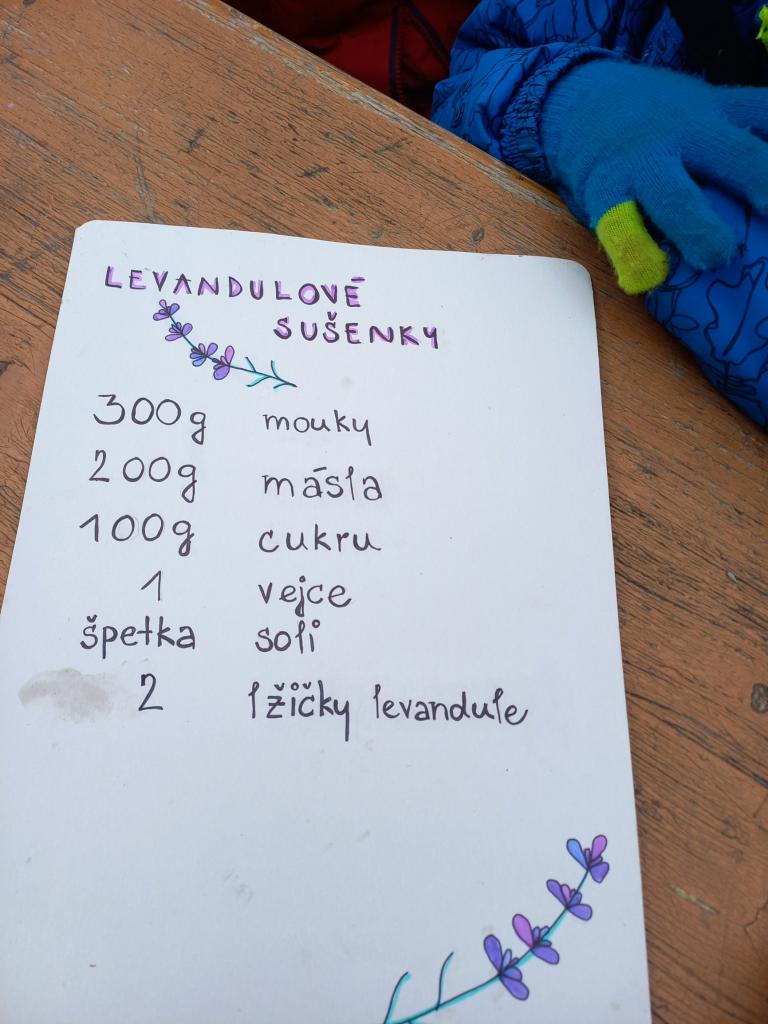 LEVANDULOVÉ
SUŠENKY
300g mouky
200g másla
100g cukru
1 vejce
špetka soli
2 lžičky levandule